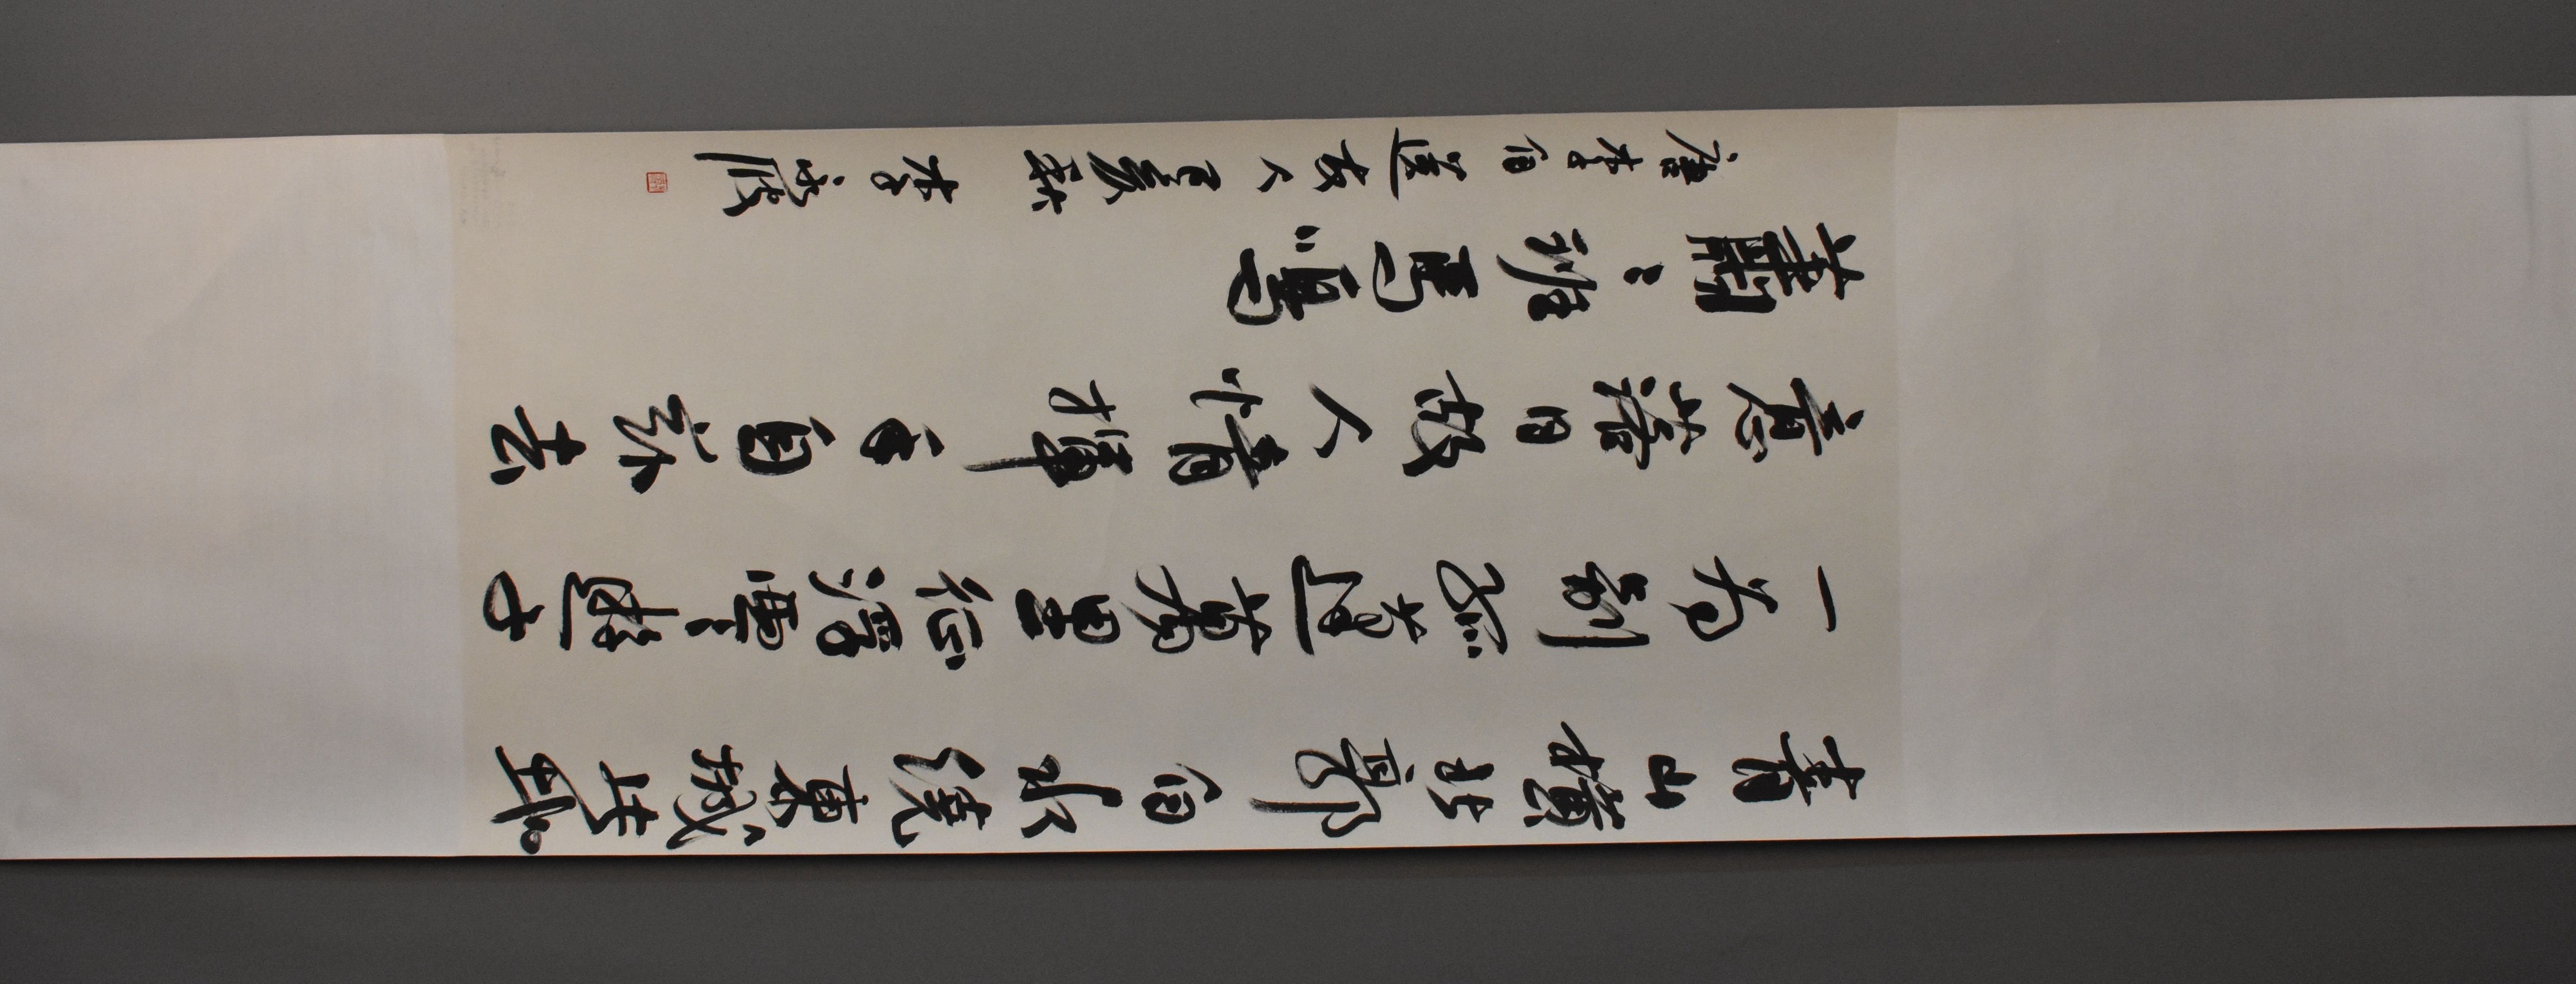 青山橫北郭白水繞東城此地
一為別孤蓬萬里征浮雲遊子
意落日故人情揮手自茲去
蕭〻班馬鳴
唐李白送友人 亥秋 李